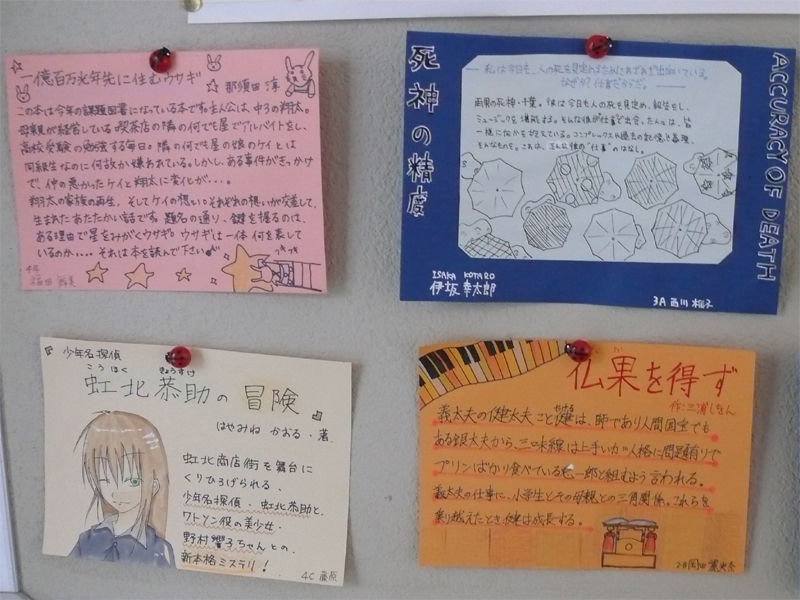 一億百万光年先に住むウサギ
那須田 淳
この本は今年の課題図書になっている本です。主人公は、中3の翔太。
母親が経営している喫茶店の隣の何でも屋でアルバイトをし、
高校受験の勉強する毎日。隣の何でも屋の娘のケイとは
同級生なのに何故か嫌われている。しかし、ある事件がきっかけ
で、仲の悪かったケイと翔太に変化が・・・。
翔太の家族の再生、そしてケイの想い。それぞれの想いが交差して、
生まれたあたたかい話です。題名の通り、鍵を握るのは、
ある理由で星をみがくウサギ。ウサギは一体何を表して
いるのか・・・。それは本を読んで下さい。
死神の精度
ACCURACY OF DEATH
私は今日も、人の死を見定めるために
なぜか？仕事だからだ。
雨男の死神・千葉。彼は今日も人の死を見定め、報告をし、
ミュージックを堪能する。そんな彼が仕事で出会った人々は、皆
一様に何かを抱えている。コンプレックスや過去の記憶や義理、
そんなものを。これは、そんな彼の"仕事"のはなし。
ISAKA KOTARO
伊坂 幸太郎
3A 西川
少年名探偵
こう ほく きょうすけ
虹北恭助の冒険
はやみね かおる・著
虹北商店街を舞台に
くりひろげられる、
少年名探偵・虹北恭助と、
ワトソン役の美少女・
野村響子ちゃんとの、
新本格ミステリ！
4C 藤原
仏果を得ず
作:三浦しをん
義太夫の健太夫こと健は、師であり人間国宝でも
ある銀太夫から、三味線は上手いが人格に問題有りで
プリンばかり食べている兎一郎と組むよう言われる。
義太夫の仕事に、小学生とその母親との三角関係。これらを
乗り越えたとき健は成長する。
岡田